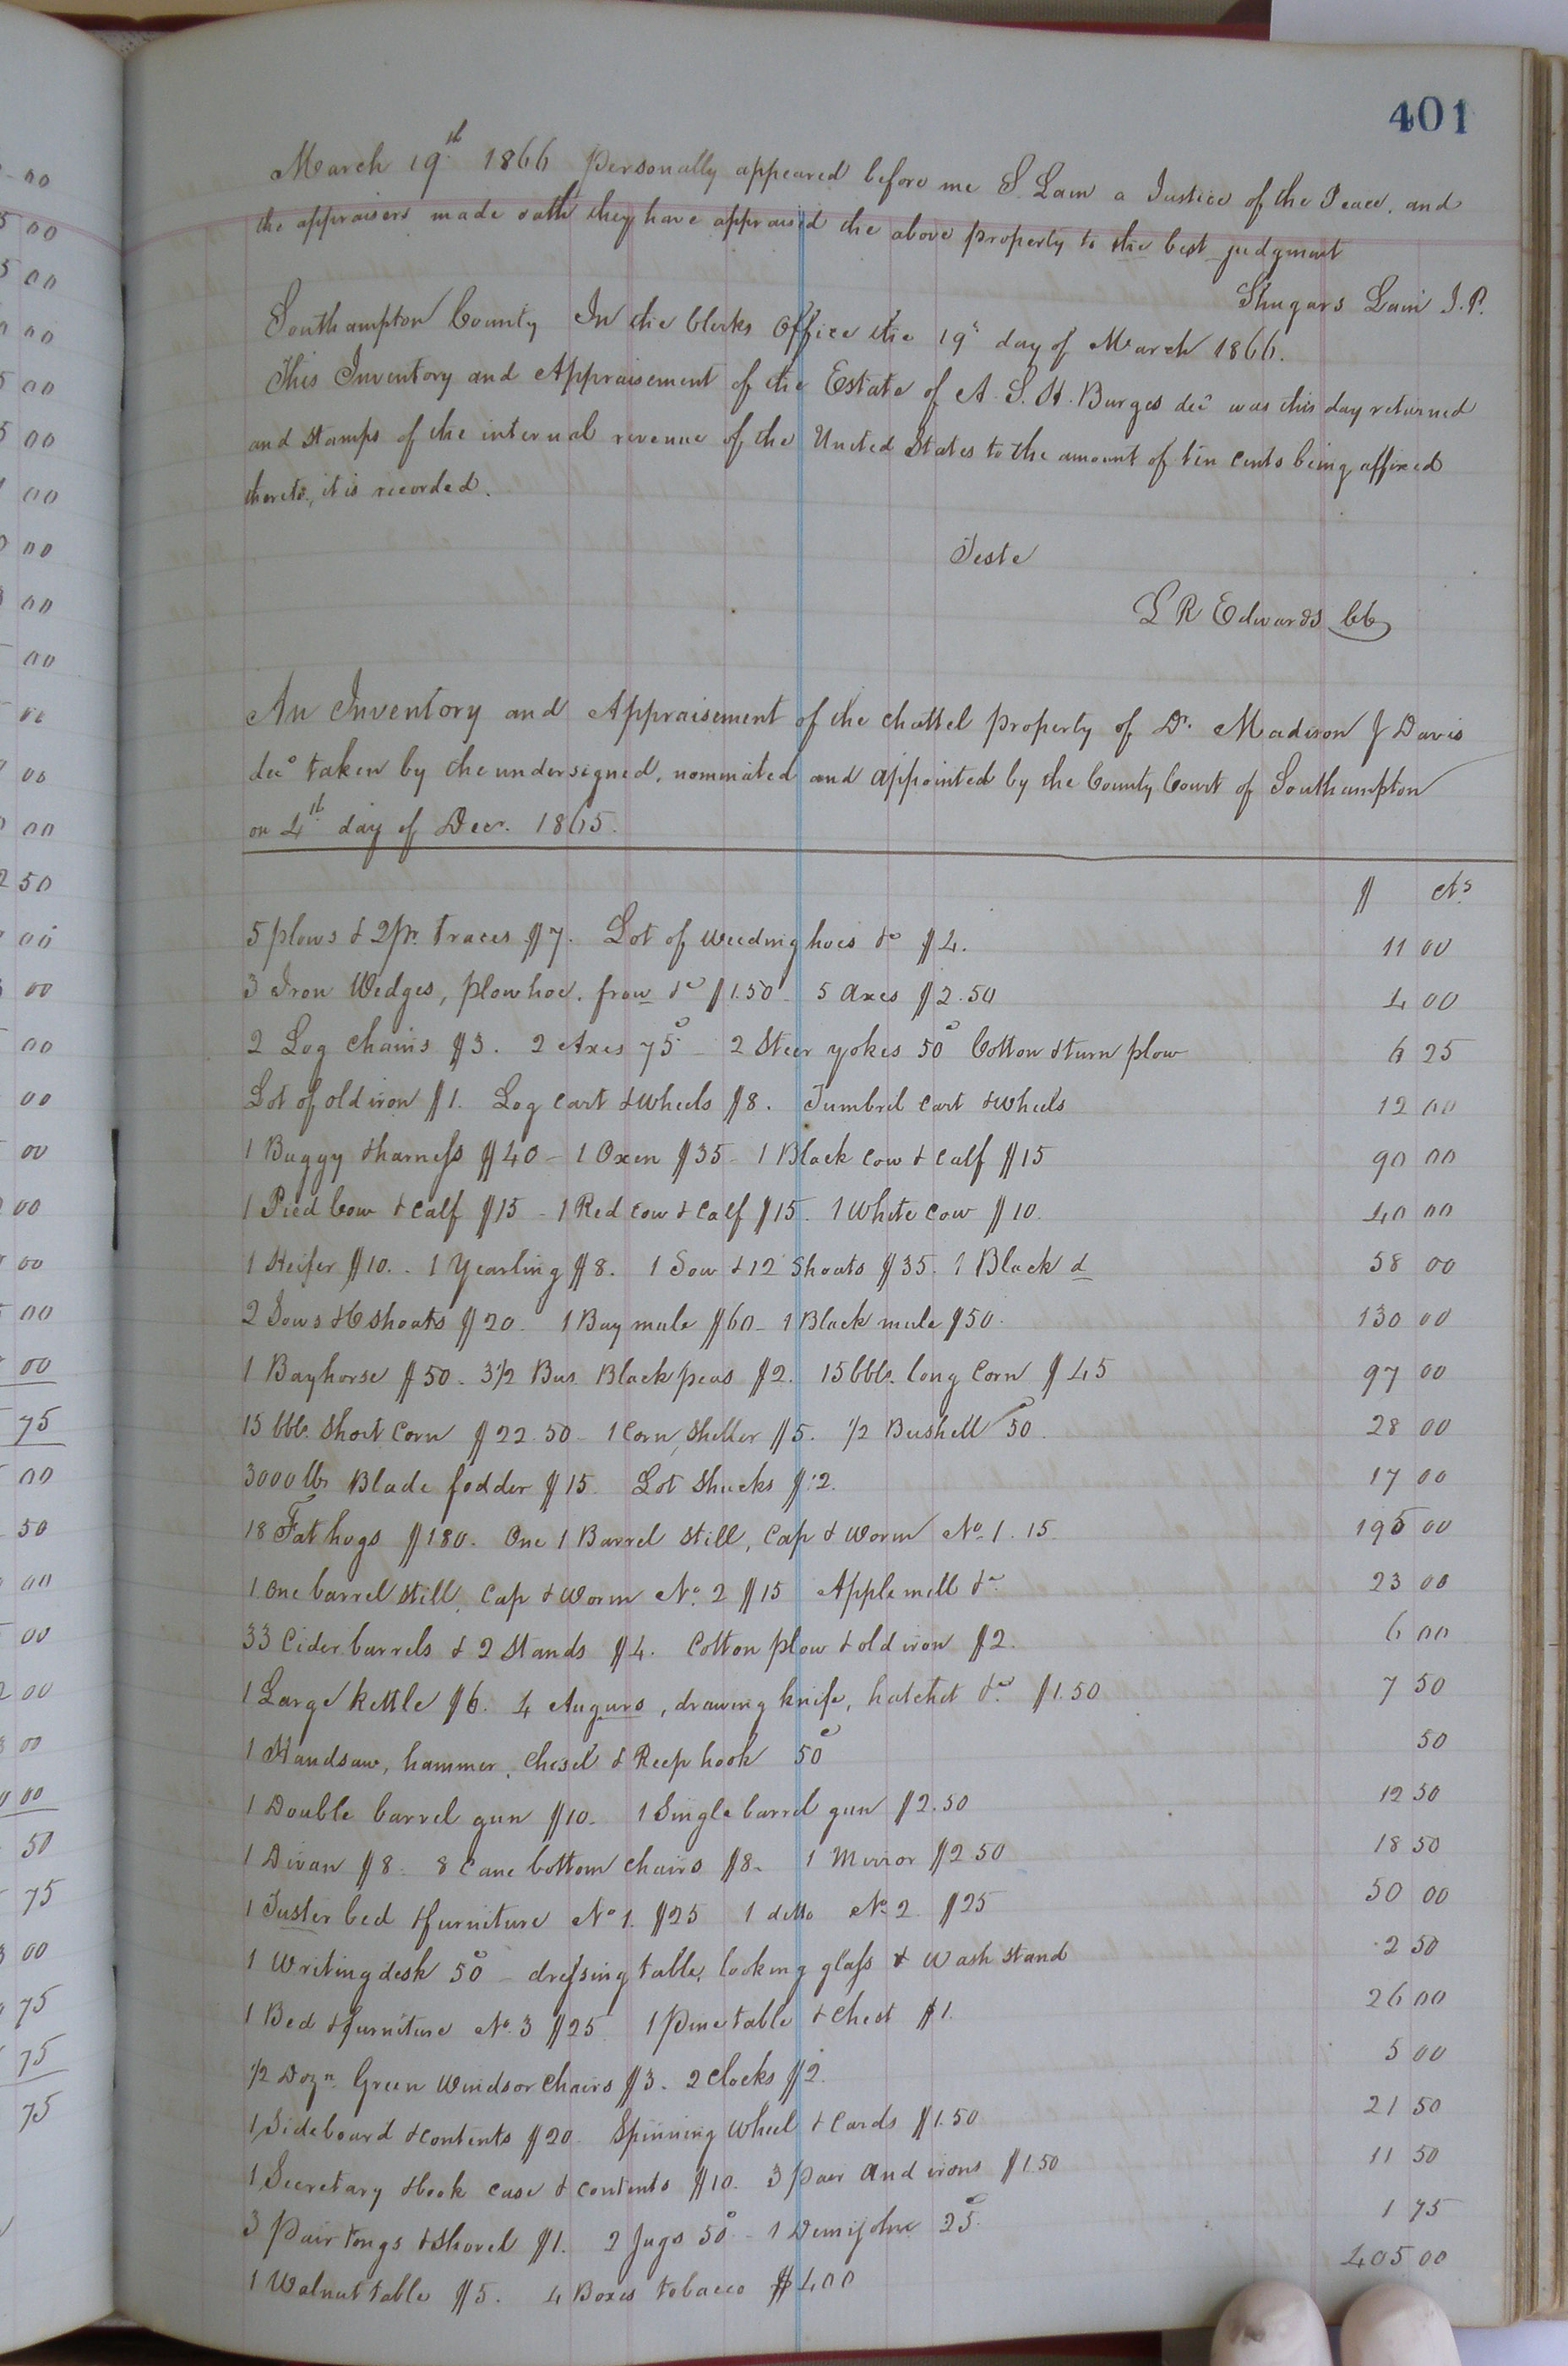 401
March 19th 1866 Personally appeared before me S. Lain a Justice of the Peace, and
the appraisers made oath they have appraised the above property to the best judgment
Shugars Lain J.P.
Southampton County In the Clerks Office the 19th day of March 1866.
This Inventory and Appraisement of the Estate of A. S. H. Burges decd was this day returned
and stamps of the internal revenue of the United States to the amount of ten cents being affixed
thereto, it is recorded.
Teste
L R Edwards CC
An Inventory and Appraisement of the chattel property of Dr. Madison J Davis
decd taken by the undersigned, nominated and appointed by the County Court of Southampton
on 4th day of Decr. 1865.
$ cts
5 plows & 2 pr. traces $7. Lot of weeding hoes &c $4. 11 00
3 Iron Wedges, plow hoe, frow &c $1.50 5 axes $2.50 4 00
2 Log Chains $3. 2 Axes 75c 2 Steer yokes 50c Cotton & turn plow 6 25
Lot of old iron $1. Log cart & wheels $8. Tumbrel cart & wheels 12 00
1 Buggy & harness $40 – 1 Oxen $35 – 1 Black cow & calf $15 90 00
1 Pied Cow & calf $15 – 1 Red cow & calf $15. 1 White cow $10. 40 00
1 Heifer $10. 1 Yearling $8. 1 Sow & 12 shoats $35. 1 Black d 58 00
2 Sows & 6 shoats $20 1 Bay mule $60 – 1 Black mule $50. 130 00
1 Bay horse $50. 3 1/2 Bus Black peas $2. 15 bbls. long corn $45 97 00
15 bbls. short corn $22.50 – 1 Corn sheller $5. 1/2 Bushell 50c. 28 00
3000 lbs Blade fodder $15 Lot shucks $2. 17 00
18 Fat hogs $180. One 1 Barrel still, Cap & worm No. 1. 15 195 00
1 One barrel still, Cap & Worm No. 2 $15 Apple mill &c 23 00
33 Cider barrels & 2 stands $4. Cotton plow & old iron $2. 6 00
1 Large kettle $6. 4 Augurs, drawing knife, hatchet &c. $1.50 7 50
1 Handsaw, hammer, chisel & Reep hook 50c 50
1 Double barrel gun $10. 1 Single barrel gun $2.50 12 50
1 Divan $8. 8 Cane bottom chairs $8. 1 Mirror $2.50 18 50
1 Tuster bed & furniture No 1. $25 1 ditto No 2. $25 50 00
1 Writing desk 50c – dressing table, looking glass & wash stand 2 50
1 Bed & furniture No. 3 $25 1 Pine table & chest $1. 26 00
1/2 Dozn. Green Windsor Chairs $3. 2 clocks $2. 5 00
1 Sideboard & contents $20 Spinning wheel & cards $1.50 21 50
1 Secretary & book case & contents $10. 3 pair and irons $1.50 11 50
3 Pair tongs & shovel $1. 2 Jugs 50c – 1 Demijohn 25c. 1 75
1 Walnut table $5. 4 Boxes tobacco $400 405 00